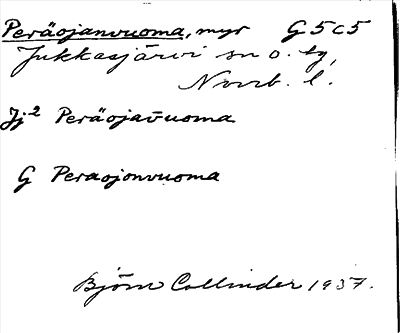 Peräojanvuoma, myr G5c5
Jukkasjärvi sn o. tg,
Norrb. l.
Jj² Peräojav̄uoma
G Peraojonvuoma
Björn Collinder 1937.